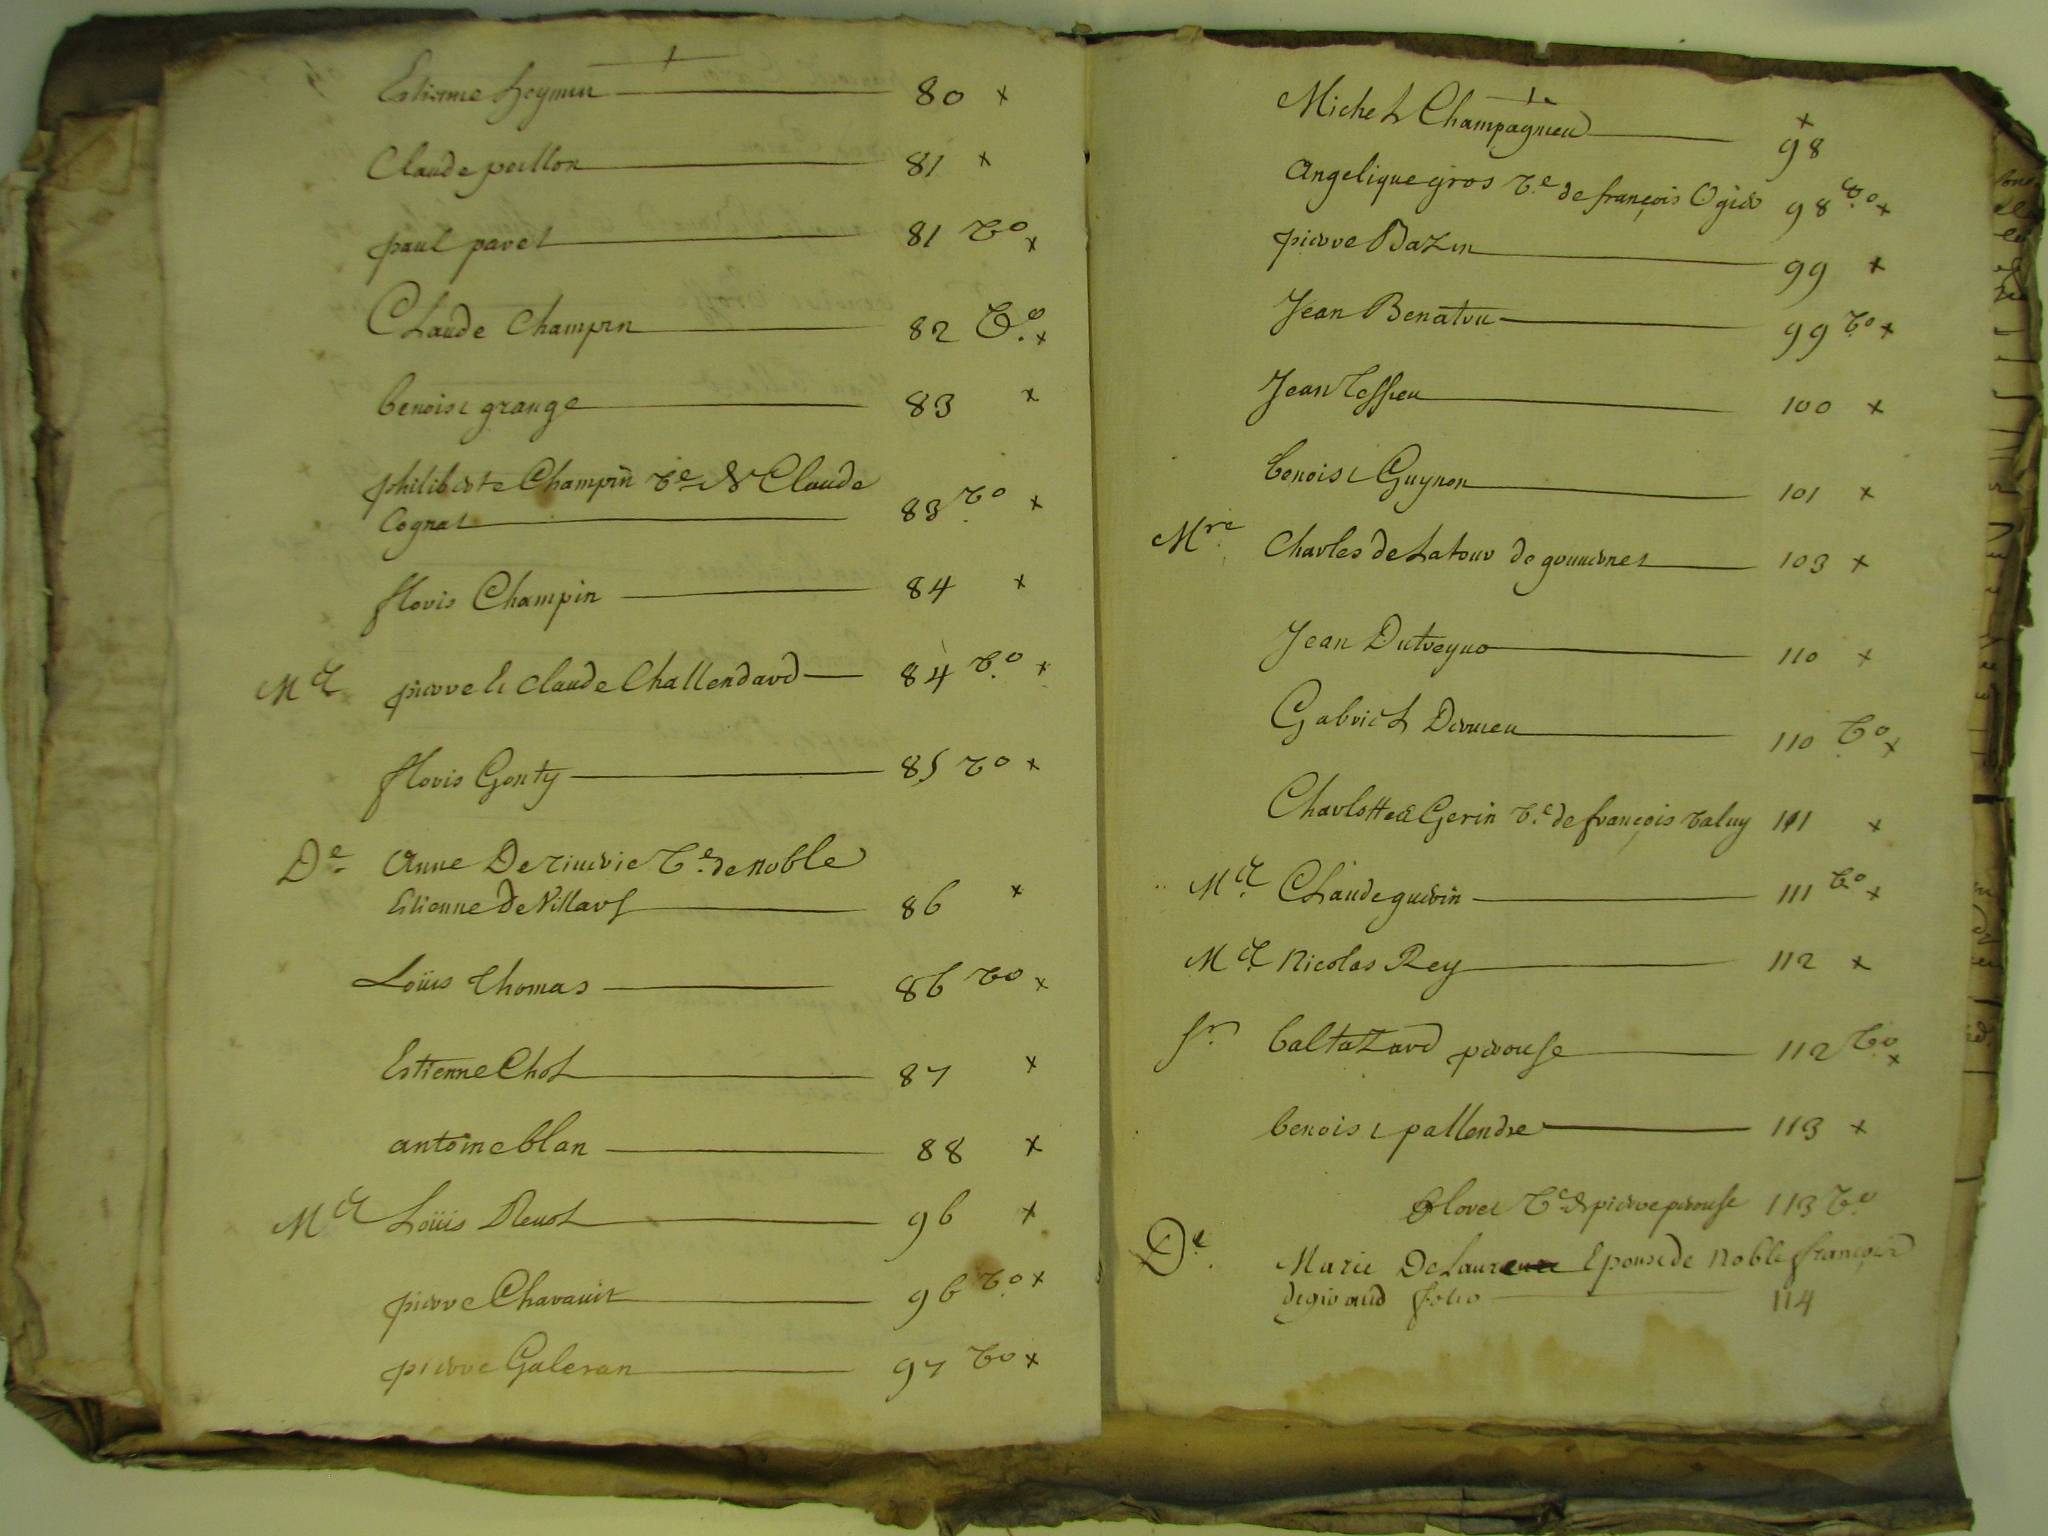 Estienne 80 x
Claude poillon 81 x
paul pavet 81 Vo x
Claude Champin 82 Vo. x
benoist grange 83 x
philiberte Champin Ve de Claude
Cognat 83 Vo x
floris Champin 84 x
Me pierre et Claude Challendard 84 Vo x
floris Gonty 85 Vo x
De Anne De Ve. de noble
Estienne De Villars 86 x
Loüis Thomas 86 Vo x
Estienne Chol 87 x
antoine blan 88 x
Me Loüis 96 x
pierre 96 Vo x
pierre Galeran 97 Vo x
Michel Champagnieu 98 x
Angelique gros Ve de françois Ogier 98 Vo x
pierre Bazin 99 x
Jean Benatru 99 Vo x
Jean Tessieu 100 x
benoist Guynon 101 x
Mre Charles de Latour de gouvernet 103 x
Jean Dutreyve 110 x
Gabriel Dervieu 110 Vo x
Charlotte Gerin Ve. de françois Taluy 111 x
Me Claude guerin 111 Vo x
Me Nicolas Rey 112 x
Sr. baltazard pirouse 112 Vo x
benoist pallendre 113 x
floret Ve de pierre pirouse 113 Vo
De. Marie De Epouse de Noble françois
degiraud folio 114